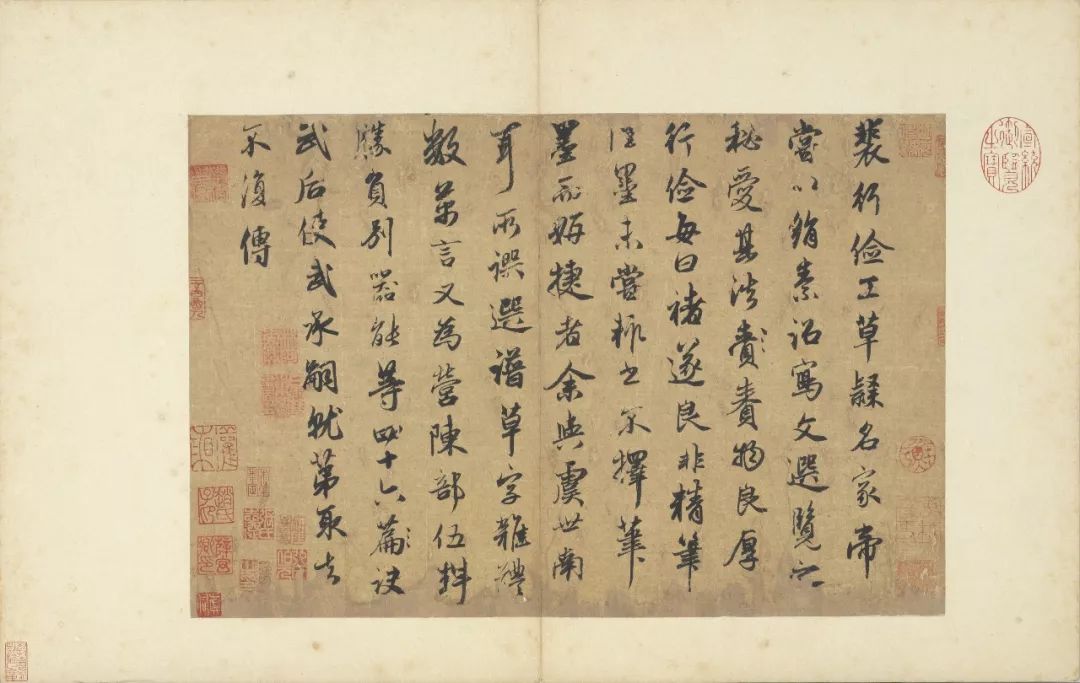 裴行俭工草隸名家帝
嘗以絹素诏寫文選覽之
秘愛其法賚賚物良厚
行俭每曰褚遂良非精筆
佳墨未嘗輙书不擇筆
墨而妍捷者余與虞世南
耳所譔選譜草字雜體
數萬言又為營陳部伍料
勝負别器能等四十六篇訣
武后使武承嗣就第取去
不復傳